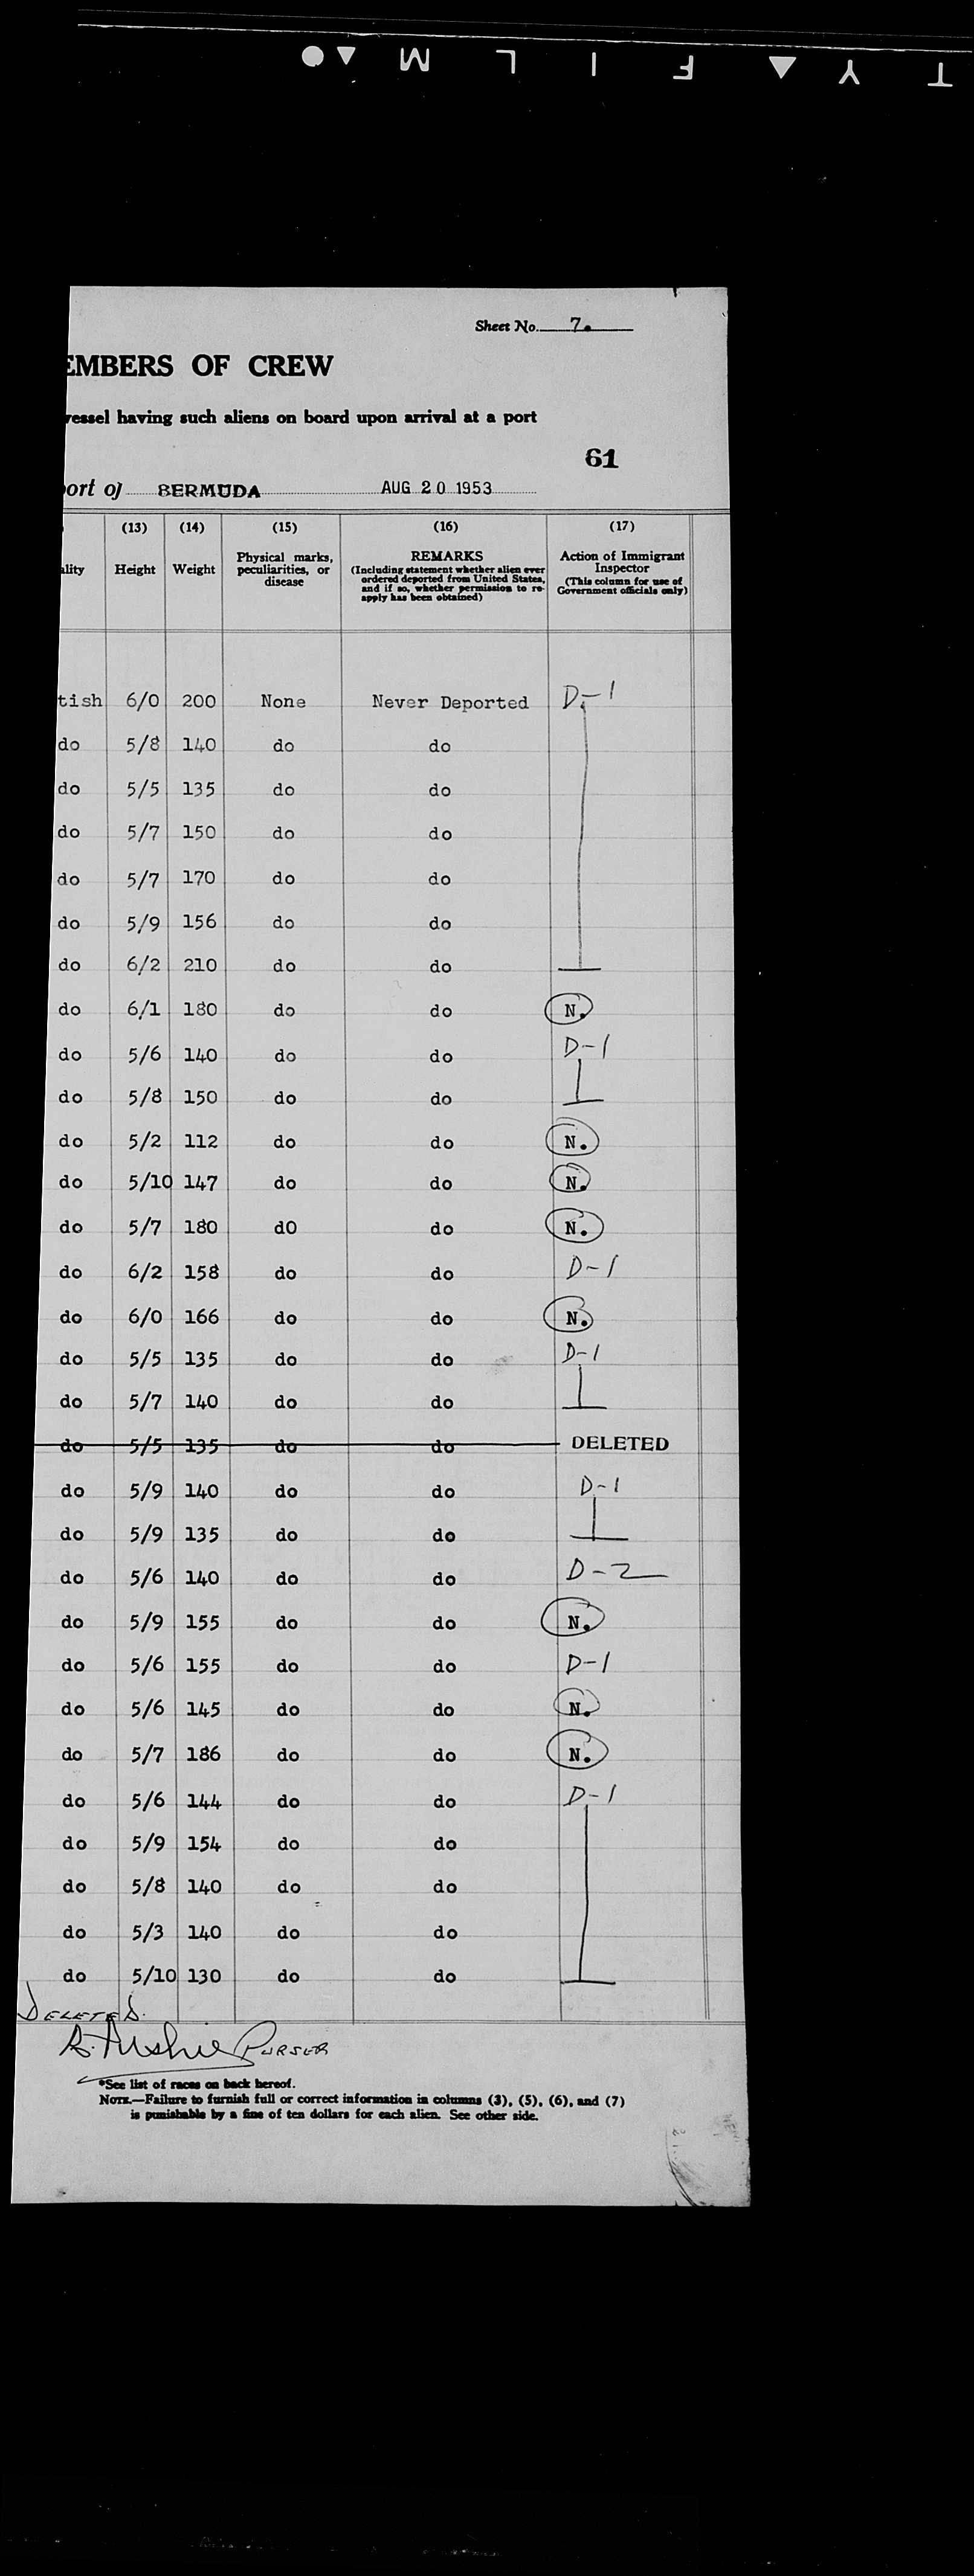 T Y F I L M
Sheet No. 7.
EMBERS OF CREW
vessel having such aliens on board upon arrival at a port
61
port of BERMUDA AUG 20 1953
(13) (14) (15) (16) (17)
ality Height Weight Physical marks, peculiarities, or disease REMARKS (Including statement whether alien ever ordered deported from United States, and if so, whether permission to re-apply has been obtained) Action of Immigrant Inspector (This column for use of Government officials only)
tish 6/0 200 None Never Deported D-1
do 5/8 140 do do
do 5/5 135 do do
do 5/7 150 do do
do 5/7 170 do do
do 5/9 156 do do
do 6/2 210 do do
do 6/1 180 do do N.
do 5/6 140 do do D-1
do 5/8 150 do do
do 5/2 112 do do N.
do 5/10 147 do do N.
do 5/7 180 dO do N.
do 6/2 158 do do D-1
do 6/0 166 do do N.
do 5/5 135 do do D-1
do 5/7 140 do do
do 5/5 135 do do DELETED
do 5/9 140 do do D-1
do 5/9 135 do do
do 5/6 140 do do D-2
do 5/9 155 do do N.
do 5/6 155 do do D-1
do 5/6 145 do do N.
do 5/7 186 do do N.
do 5/6 144 do do D-1
do 5/9 154 do do
do 5/8 140 do do
do 5/3 140 do do
do 5/10 130 do do
DELETED.
PURSER
*See list of races on back hereof.
NOTE.—Failure to furnish full or correct information in columns (3), (5), (6), and (7)
is punishable by a fine of ten dollars for each alien. See other side.